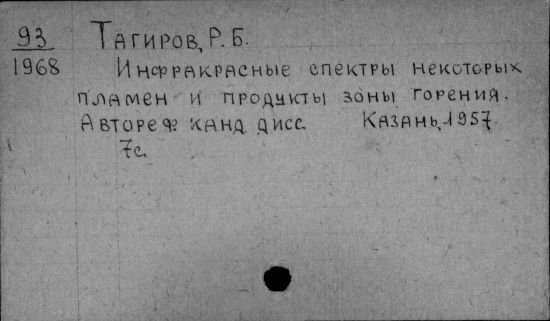 93 Тагиров, Р. Б.
1968 Инфракрасные спектры некоторых
пламен и продукты зоны горения.
Автореф канд дисс. Казань, 1957.
7с.